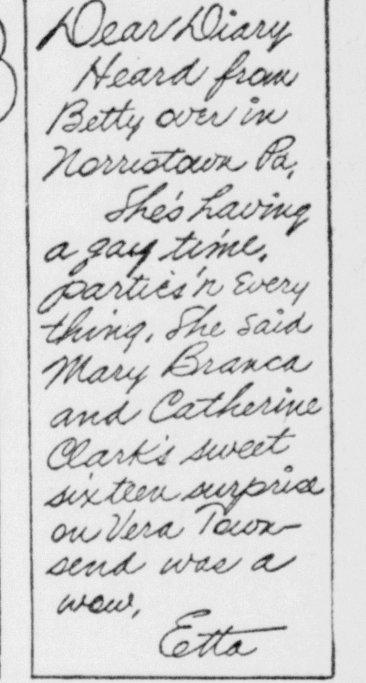 Dear Diary
Heard from
Betty over in
Norristown Pa.
She's having
a gay time.
parties 'n every
thing. She said
Mary Branca
and Catherine
Clark's sweet
sixteen surprise
on Vera Town-
send was a
wow.
Etta